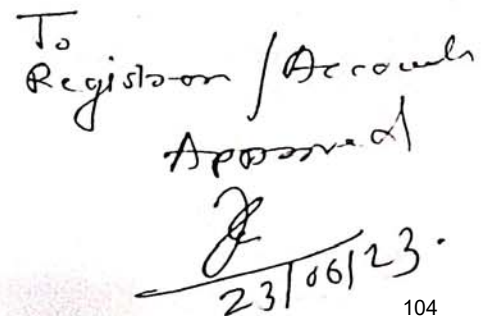 To
Registrar / Accounts
Approved
23/06/23.
104